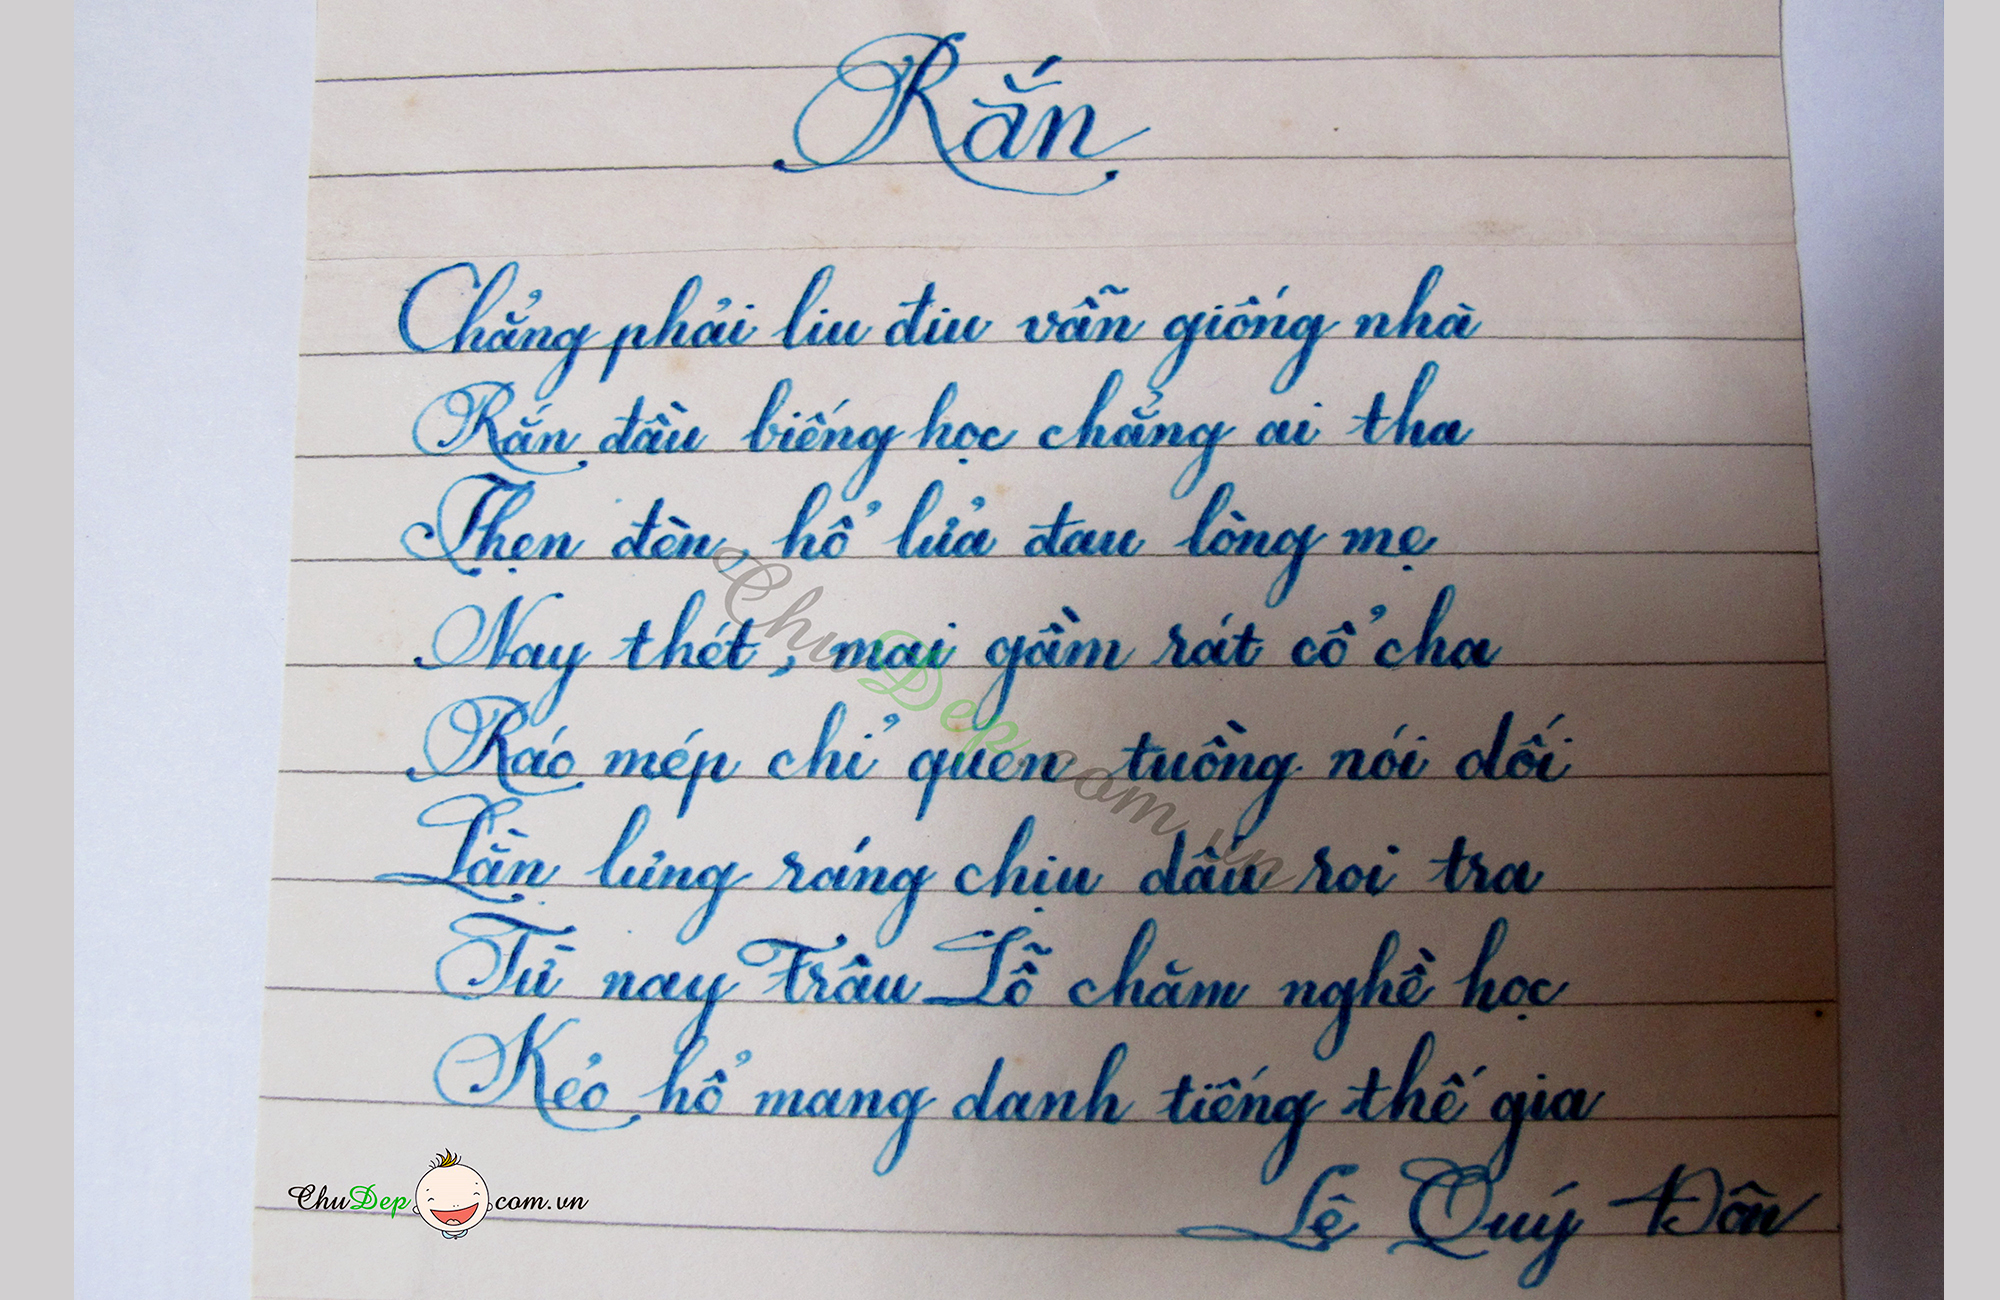 Rắn
Chẳng phải liu điu vẫn giống nhà
Rắn đầu biếng học chẳng ai tha
Thẹn đèn, hổ lửa đau lòng mẹ
Nay thét, mai gầm rát cổ cha
Ráo mép chỉ quen tuồng nói dối
Lằn lưng ráng chịu dấu roi tra
Từ nay Trâu Lỗ chăm nghề học
Kẻo hổ mang danh tiếng thế gia
Lê Quý Đôn
ChuDep.com.vn
ChuDep com.vn